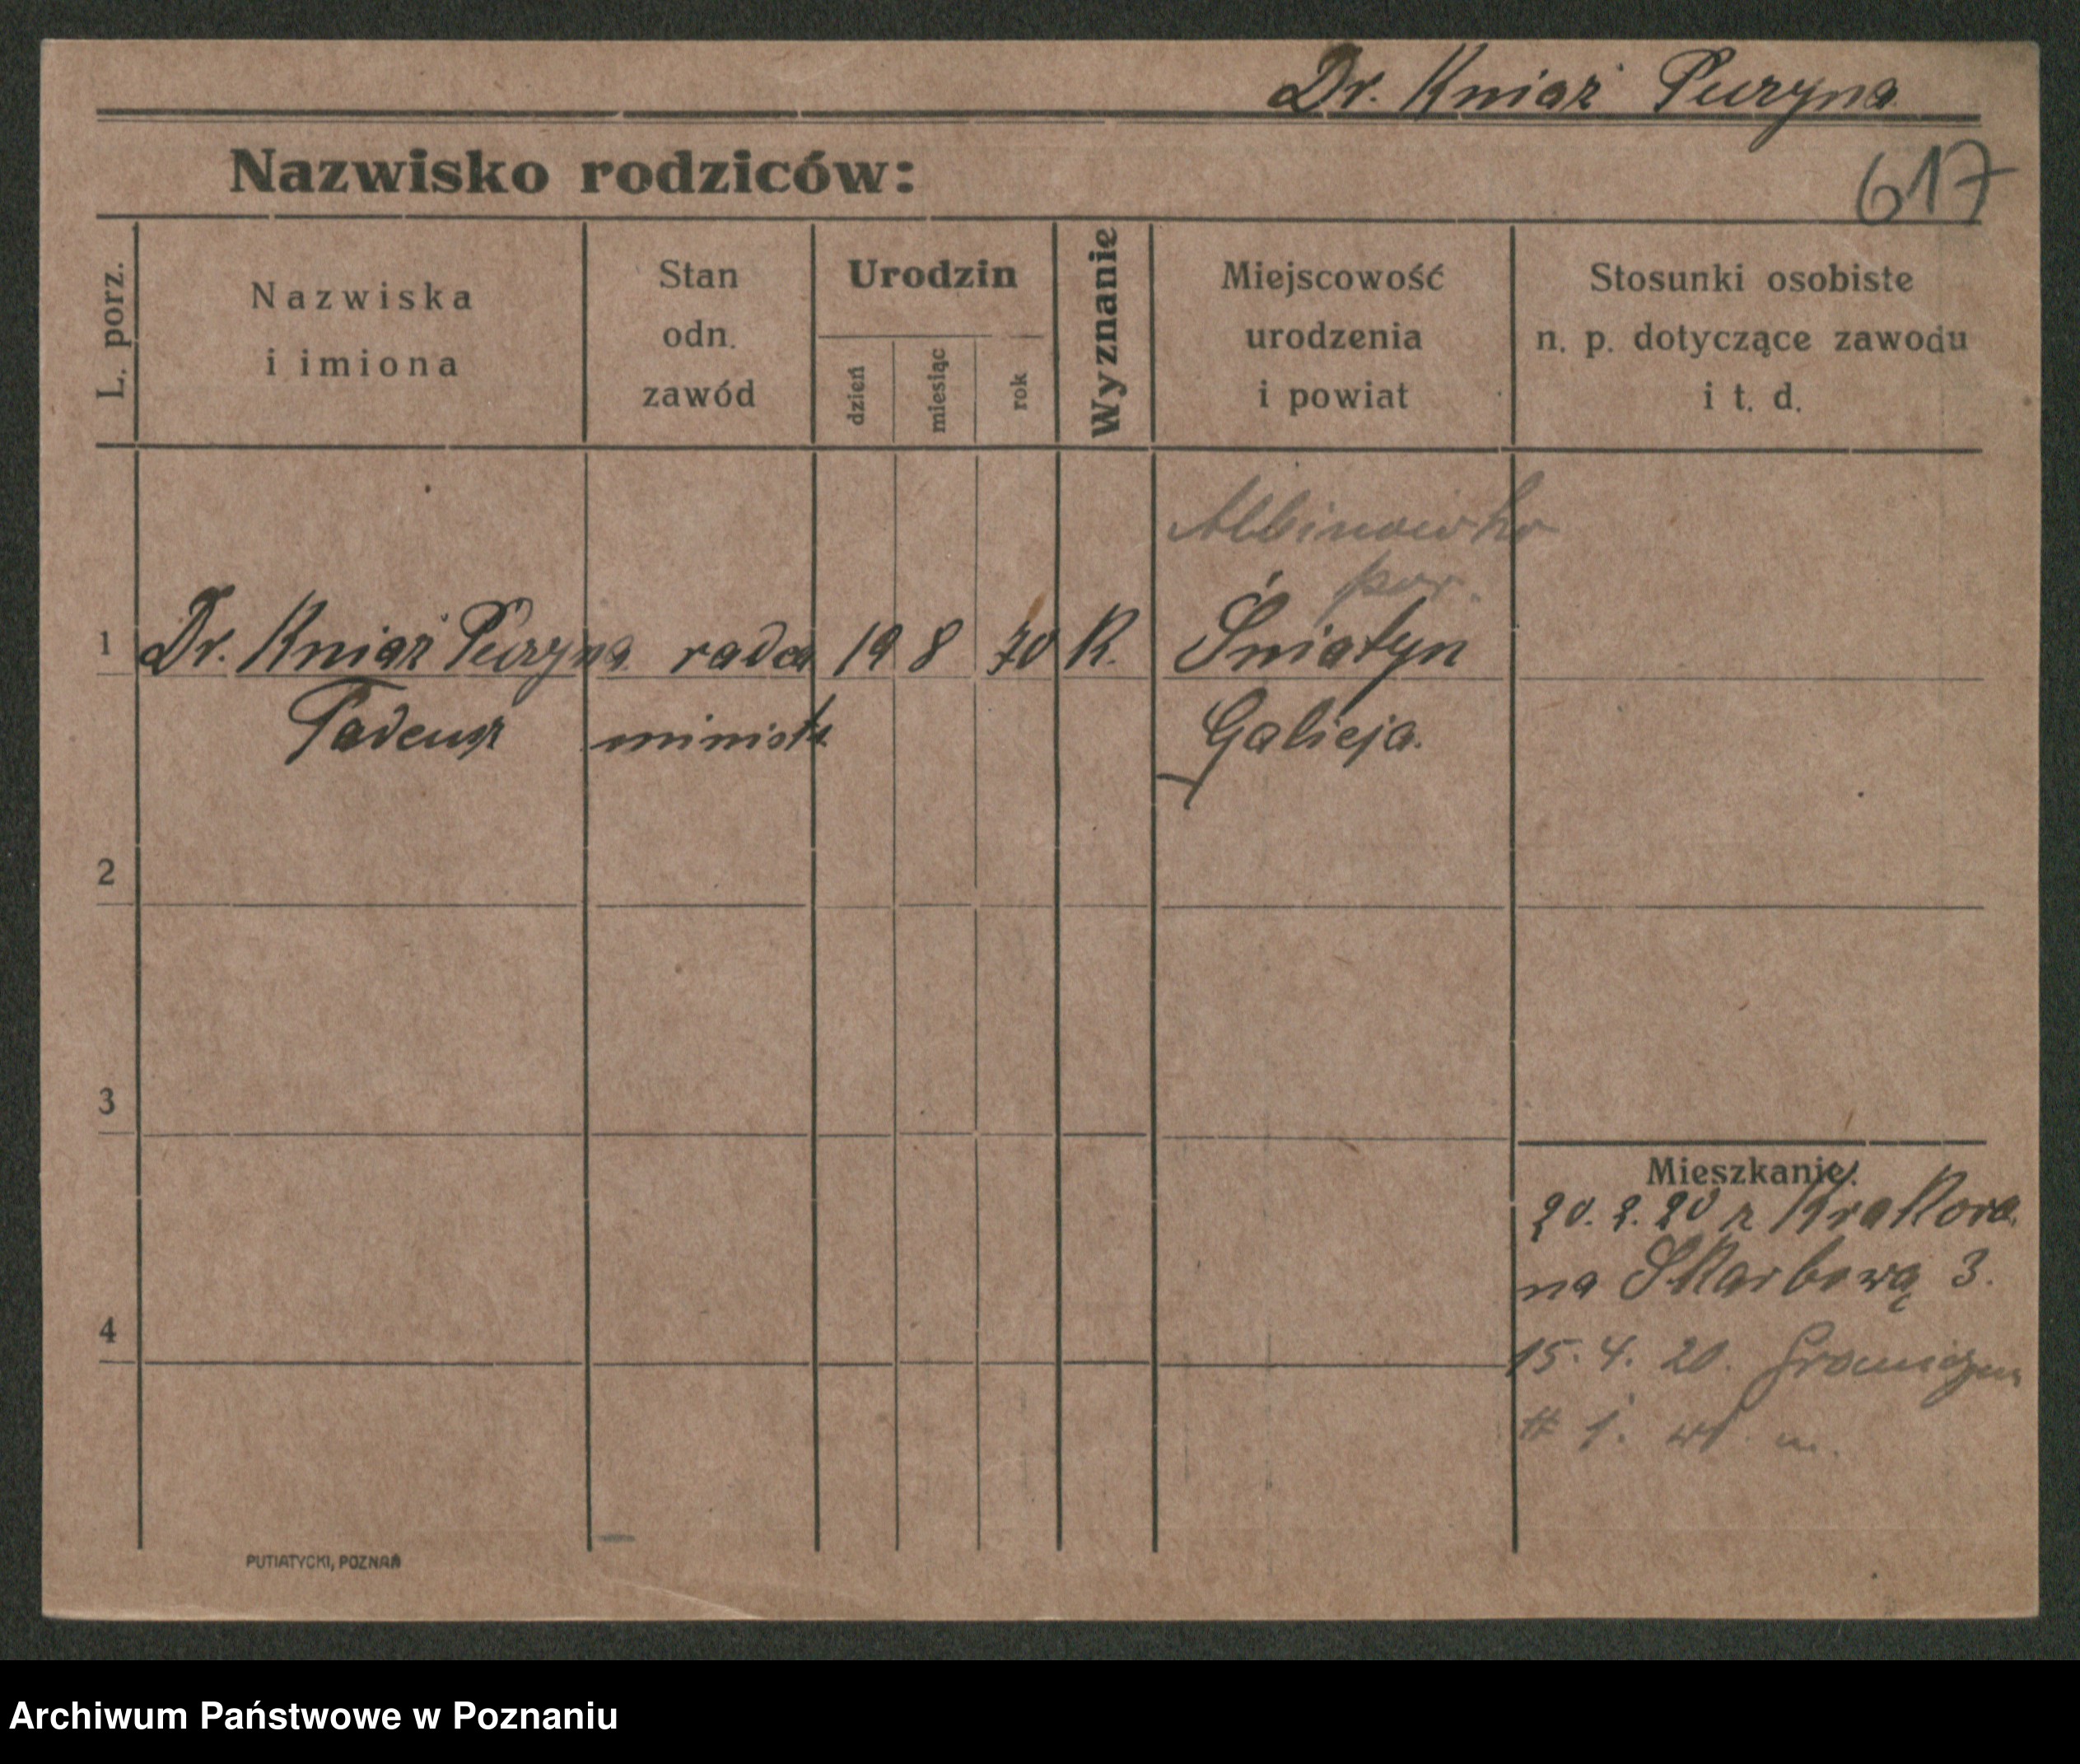 Dr. Kniaź Puzyna
Nazwisko rodziców:
617
L. porz.
Nazwiska
i imiona
Stan
odn.
zawód
Urodzin
dzień
miesiąc
rok
Wyznanie
Miejscowość
urodzenia
i powiat
Stosunki osobiste
n. p. dotyczące zawodu
i t. d.
Albinówka
pow.
1 Dr. Kniaź Puzyna radca 19 8 70 R. Śniatyn
Tadeusz minist. Galicja.
2
3
Mieszkanie:
20. 2. 20 z Krakowa
na Skarbową 3.
4
15. 4. 20.
# 1. wł. m.
PUTIATYCKI, POZNAŃ
Archiwum Państwowe w Poznaniu